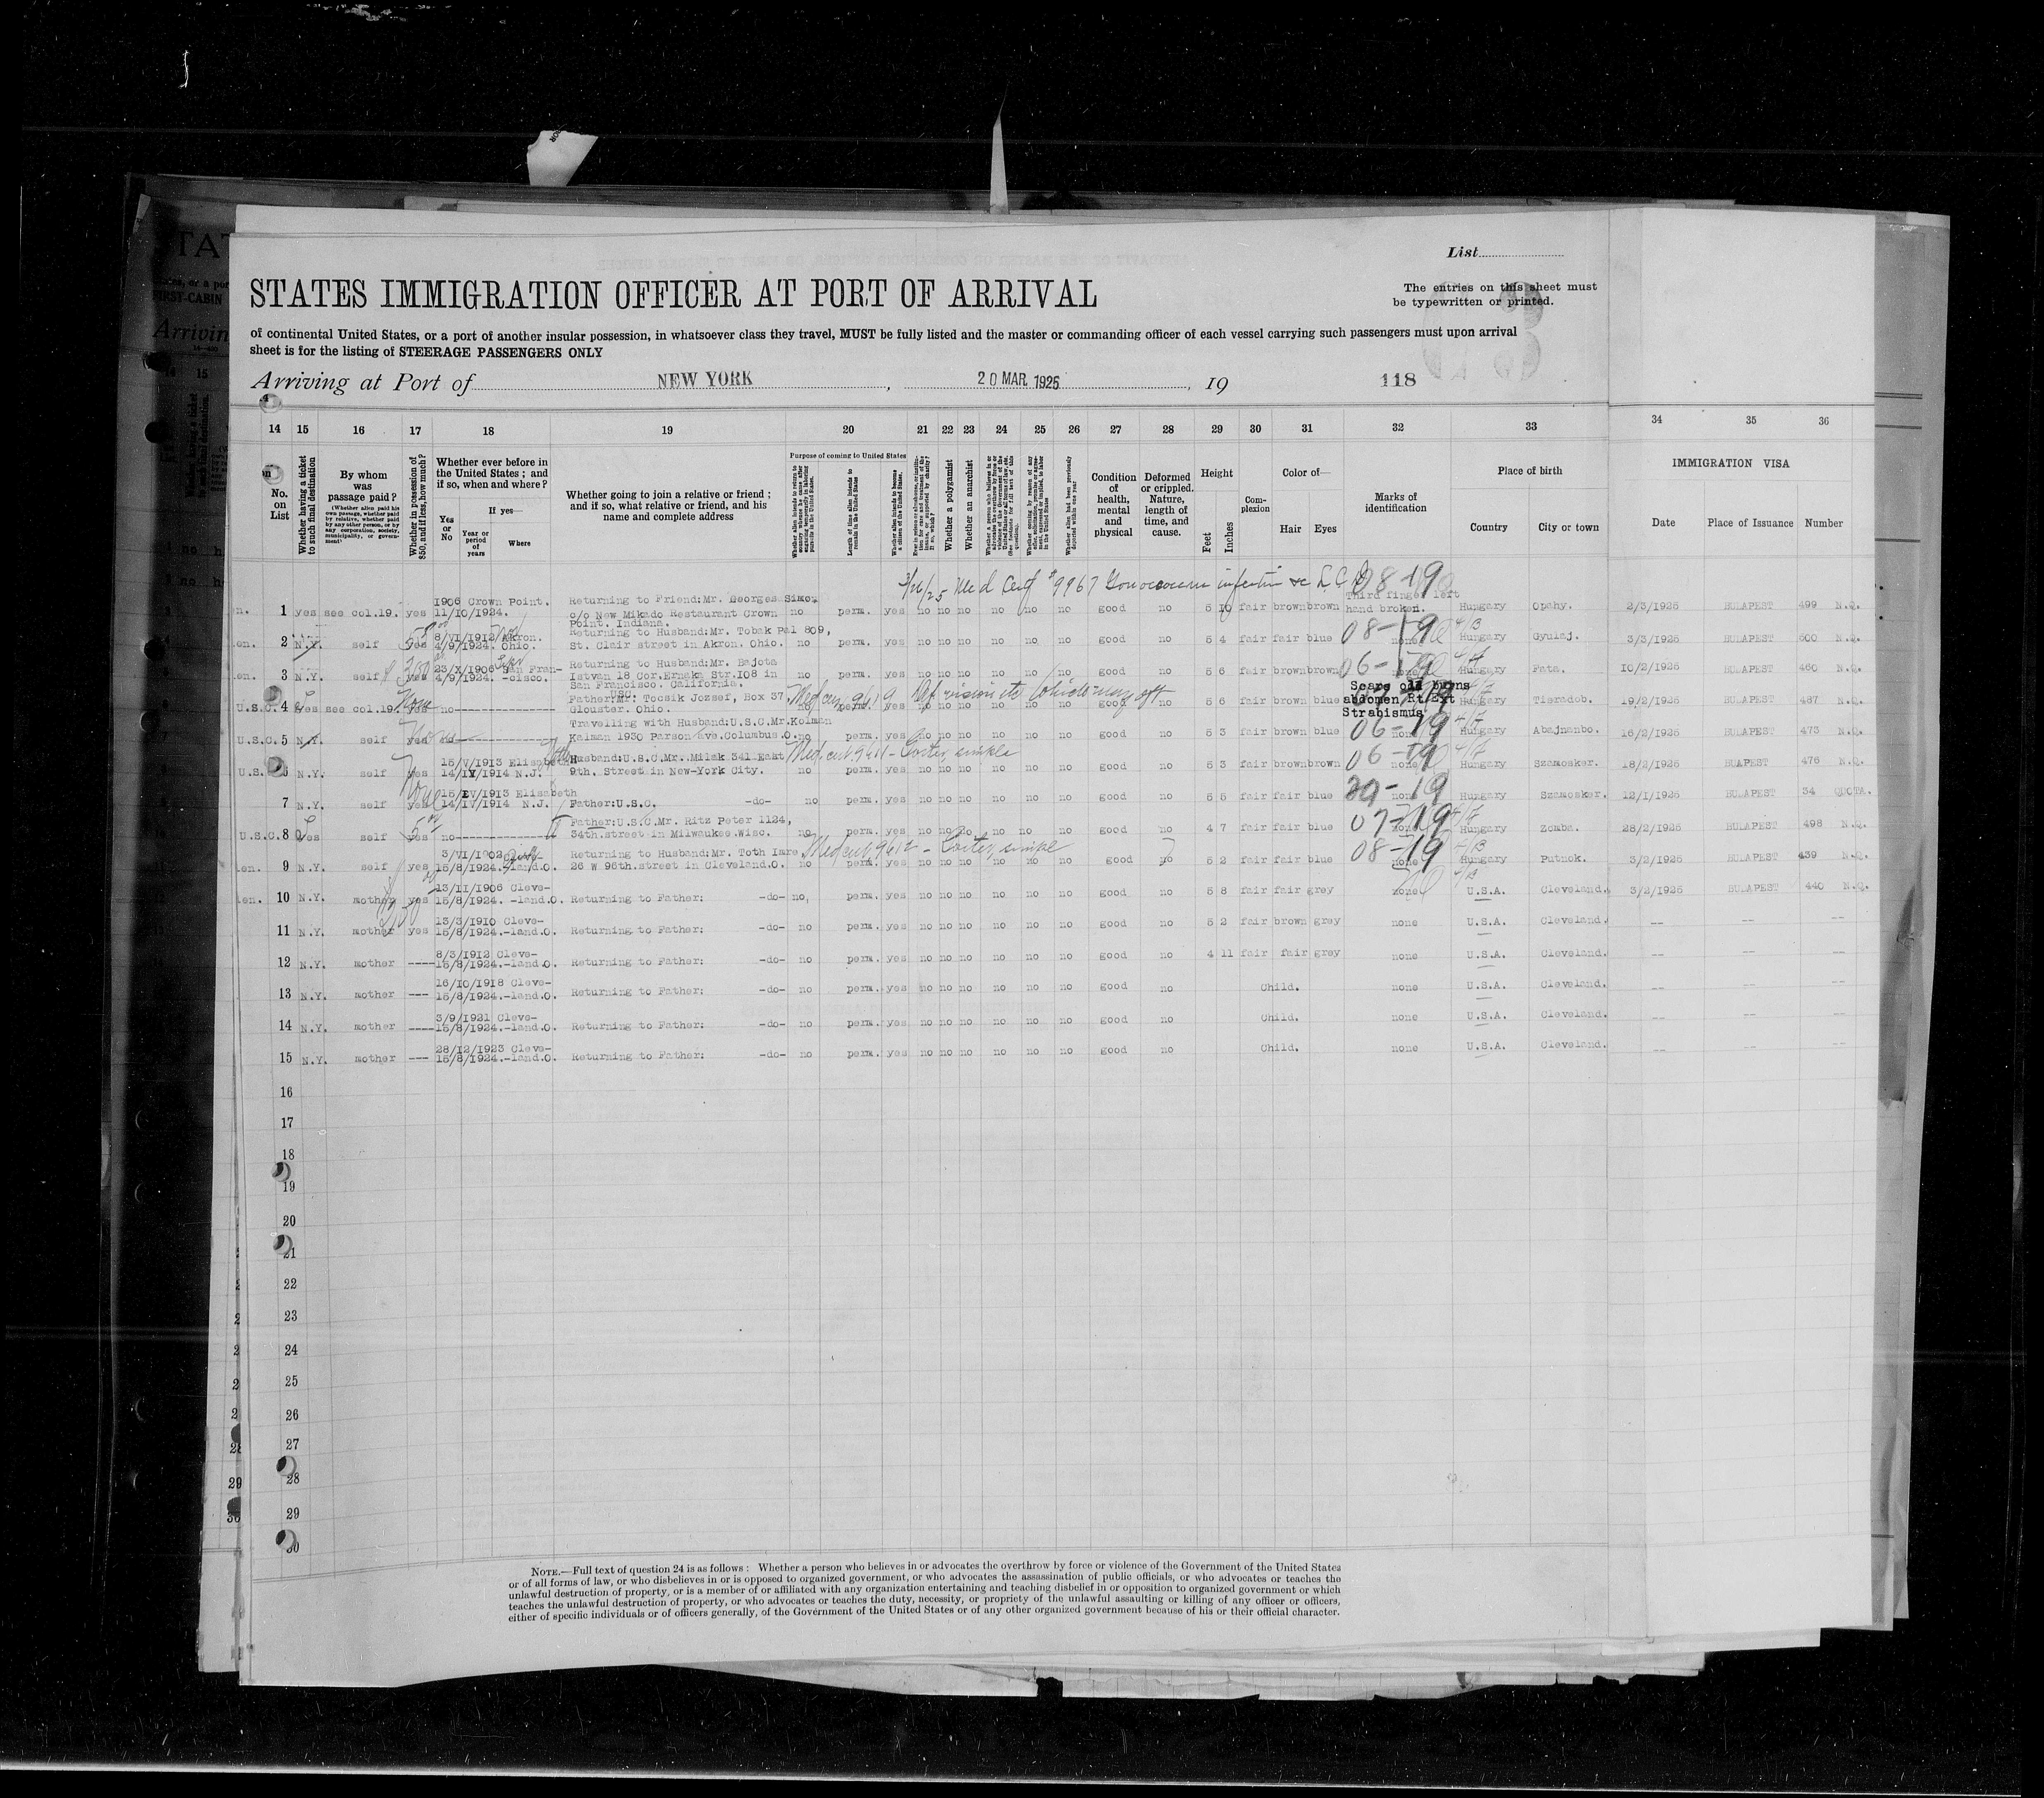 List
STATES IMMIGRATION OFFICER AT PORT OF ARRIVAL
The entries on this sheet must
be typewritten or printed.
of continental United States, or a port of another insular possession, in whatsoever class they travel, MUST be fully listed and the master or commanding officer of each vessel carrying such passengers must upon arrival
sheet is for the listing of STEERAGE PASSENGERS ONLY
Arriving at Port of NEW YORK , 20 MAR. 1925 , 19 118
14 15 16 17 18 19 20 21 22 23 24 25 26 27 28 29 30 31 32 33 34 35 36
No. on List
Whether having a ticket to such final destination
By whom was passage paid?
(Whether alien paid his own passage, whether paid by relative, whether paid by any other person, or by any corporation, society, municipality, or government)
Whether in possession of $50, and if less, how much?
Whether ever before in the United States; and if so, when and where?
Yes or No
If yes—
Year or period of years
Where
Whether going to join a relative or friend; and if so, what relative or friend, and his name and complete address
Purpose of coming to United States
Length of time alien intends to remain in the United States
Whether alien intends to become a citizen of the United States.
Whether a polygamist
Whether an anarchist
Condition of health, mental and physical
Deformed or crippled. Nature, length of time, and cause.
Height
Feet
Inches
Complexion
Color of—
Hair
Eyes
Marks of identification
Place of birth
Country
City or town
IMMIGRATION VISA
Date
Place of Issuance
Number
3/26/25 Med Cert #9967 08-19
1 yes see col.19. yes 1906 Crown Point. 11/10/1924. Returning to Friend:Mr. Georges Simon c/o New Mikado Restaurant Crown Point. Indiana. no perm. yes no no no no no no good no 5 10 fair brown brown Third finger left hand broken. Hungary Opahy. 2/3/1925 BUDAPEST 499 N.Q.
2 N.Y. self yes 8/VI/1912 Akron. 4/9/1924. Ohio. Returning to Husband:Mr. Tobak Pal 809, St. Clair street in Akron. Ohio. no perm. yes no no no no no no good no 5 4 fair fair blue none 08-19 Hungary Gyulaj. 3/3/1925 BUDAPEST 500 N.Q.
3 N.Y. self yes 23/X/1906 San Fran- 4/9/1924. -cisco. Returning to Husband:Mr. Bajota Istvan 18 Cor.Erneka Str.108 in San Francisco. California. no perm. yes no no no no no no good no 5 6 fair brown brown none 06-19 Hungary Pata. 10/2/1925 BUDAPEST 460 N.Q.
U.S.C. 4 yes see col.19. yes None no Father:Mr: Tocsik Jozsef, Box 37. Glouster. Ohio. USC. no perm. yes no no no no no no good no 5 6 fair brown blue Scars old burns abdomen Rt.Ext Strabismus Hungary Tiszadob. 19/2/1925 BUDAPEST 487 N.Q.
U.S.C. 5 N.Y. self yes no Travelling with Husband:U.S.C.Mr.Kolman Kalman 1930 Parson Ave.Columbus.O. no perm. yes no no no no no no good no 5 3 fair brown blue none 06-19 Hungary Abajnanbo. 16/2/1925 BUDAPEST 473 N.Q.
U.S. 6 N.Y. self yes 15/V/1913 Elisabeth 14/IV/1914 N.J. Husband:U.S.C.Mr. Milak 341 East 9th. Street in New-York City. no perm. yes no no no no no no good no 5 3 fair brown brown none 06-19 Hungary Szamosker. 18/2/1925 BUAPEST 476 N.Q.
7 N.Y. self yes None 15/IV/1913 Elisabeth 14/IV/1914 N.J. Father:U.S.C. -do- no perm. yes no no no no no no good no 5 5 fair fair blue none 19 Hungary Szamosker. 12/1/1925 BUDAPEST 34 QUOTA.
U.S.C. 8 yes self yes no Father:U.S.C.Mr. Ritz Peter 1124, 34th.street in Milwaukee.Wisc. no perm. yes no no no no no no good no 4 7 fair fair blue none 07-19 Hungary Zomba. 28/2/1925 BUDAPEST 498 N.Q.
9 N.Y. self yes 3/VI/1902 15/8/1924.-land.O. Returning to Husband:Mr. Toth Imre 26 W 96th.street in Cleveland.O. no perm. yes no no no no no no good no 5 2 fair fair blue none 08-19 Hungary Putnok. 3/2/1925 BUDAPEST 439 N.Q.
10 N.Y. mother yes 13/11/1906 Cleve- 15/8/1924. -land.O. Returning to Father: -do- no, perm. yes no no no no no no good no 5 8 fair fair grey none U.S.A. Cleveland. 3/2/1925 BUDAPEST 440 N.Q.
11 N.Y. mother yes 13/3/1910 Cleve- 15/8/1924.-land.O. Returning to Father: -do- no perm. yes no no no no no no good no 5 2 fair brown grey none U.S.A. Cleveland. -- -- --
12 N.Y. mother ---- 8/3/1912 Cleve- 15/8/1924.-land.O. Returning to Father: -do- no perm. yes no no no no no no good no 4 11 fair fair grey none U.S.A. Cleveland. -- -- --
13 N.Y. mother --- 16/10/1918 Cleve- 15/8/1924.-land.O. Returning to Father: -do- no perm. yes no no no no no no good no Child. none U.S.A. Cleveland. -- -- --
14 N.Y. mother ---- 3/9/1921 Cleve- 15/8/1924.-land.O. Returning to Father: -do- no perm. yes no no no no no no good no Child. none U.S.A. Cleveland. -- -- --
15 N.Y. mother --- 28/12/1923 Cleve- 15/8/1924.-land.O. Returning to Father: -do- no perm. yes no no no no no no good no Child. none U.S.A. Cleveland. -- -- --
16
17
18
19
20
21
22
23
24
25
26
27
28
29
30
NOTE.—Full text of question 24 is as follows: Whether a person who believes in or advocates the overthrow by force or violence of the Government of the United States
or of all forms of law, or who disbelieves in or is opposed to organized government, or who advocates the assassination of public officials, or who advocates or teaches the
unlawful destruction of property, or is a member of or affiliated with any organization entertaining and teaching disbelief in or opposition to organized government or which
teaches the unlawful destruction of property, or who advocates or teaches the duty, necessity, or propriety of the unlawful assaulting or killing of any officer or officers,
either of specific individuals or of officers generally, of the Government of the United States or of any other organized government because of his or their official character.